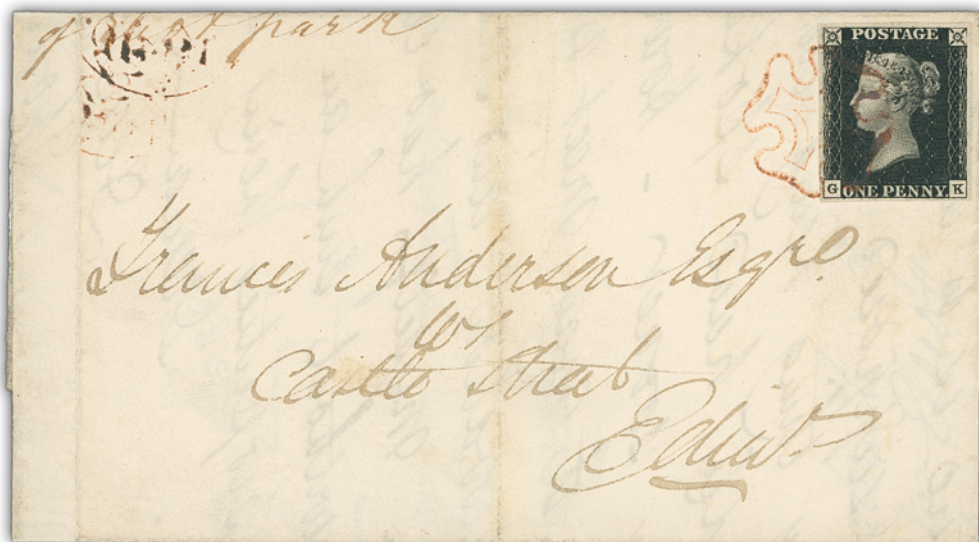 park
POSTAGE
G ONE PENNY. K
Francis Anderson Esqre
WS
Castle Street
Edinr.